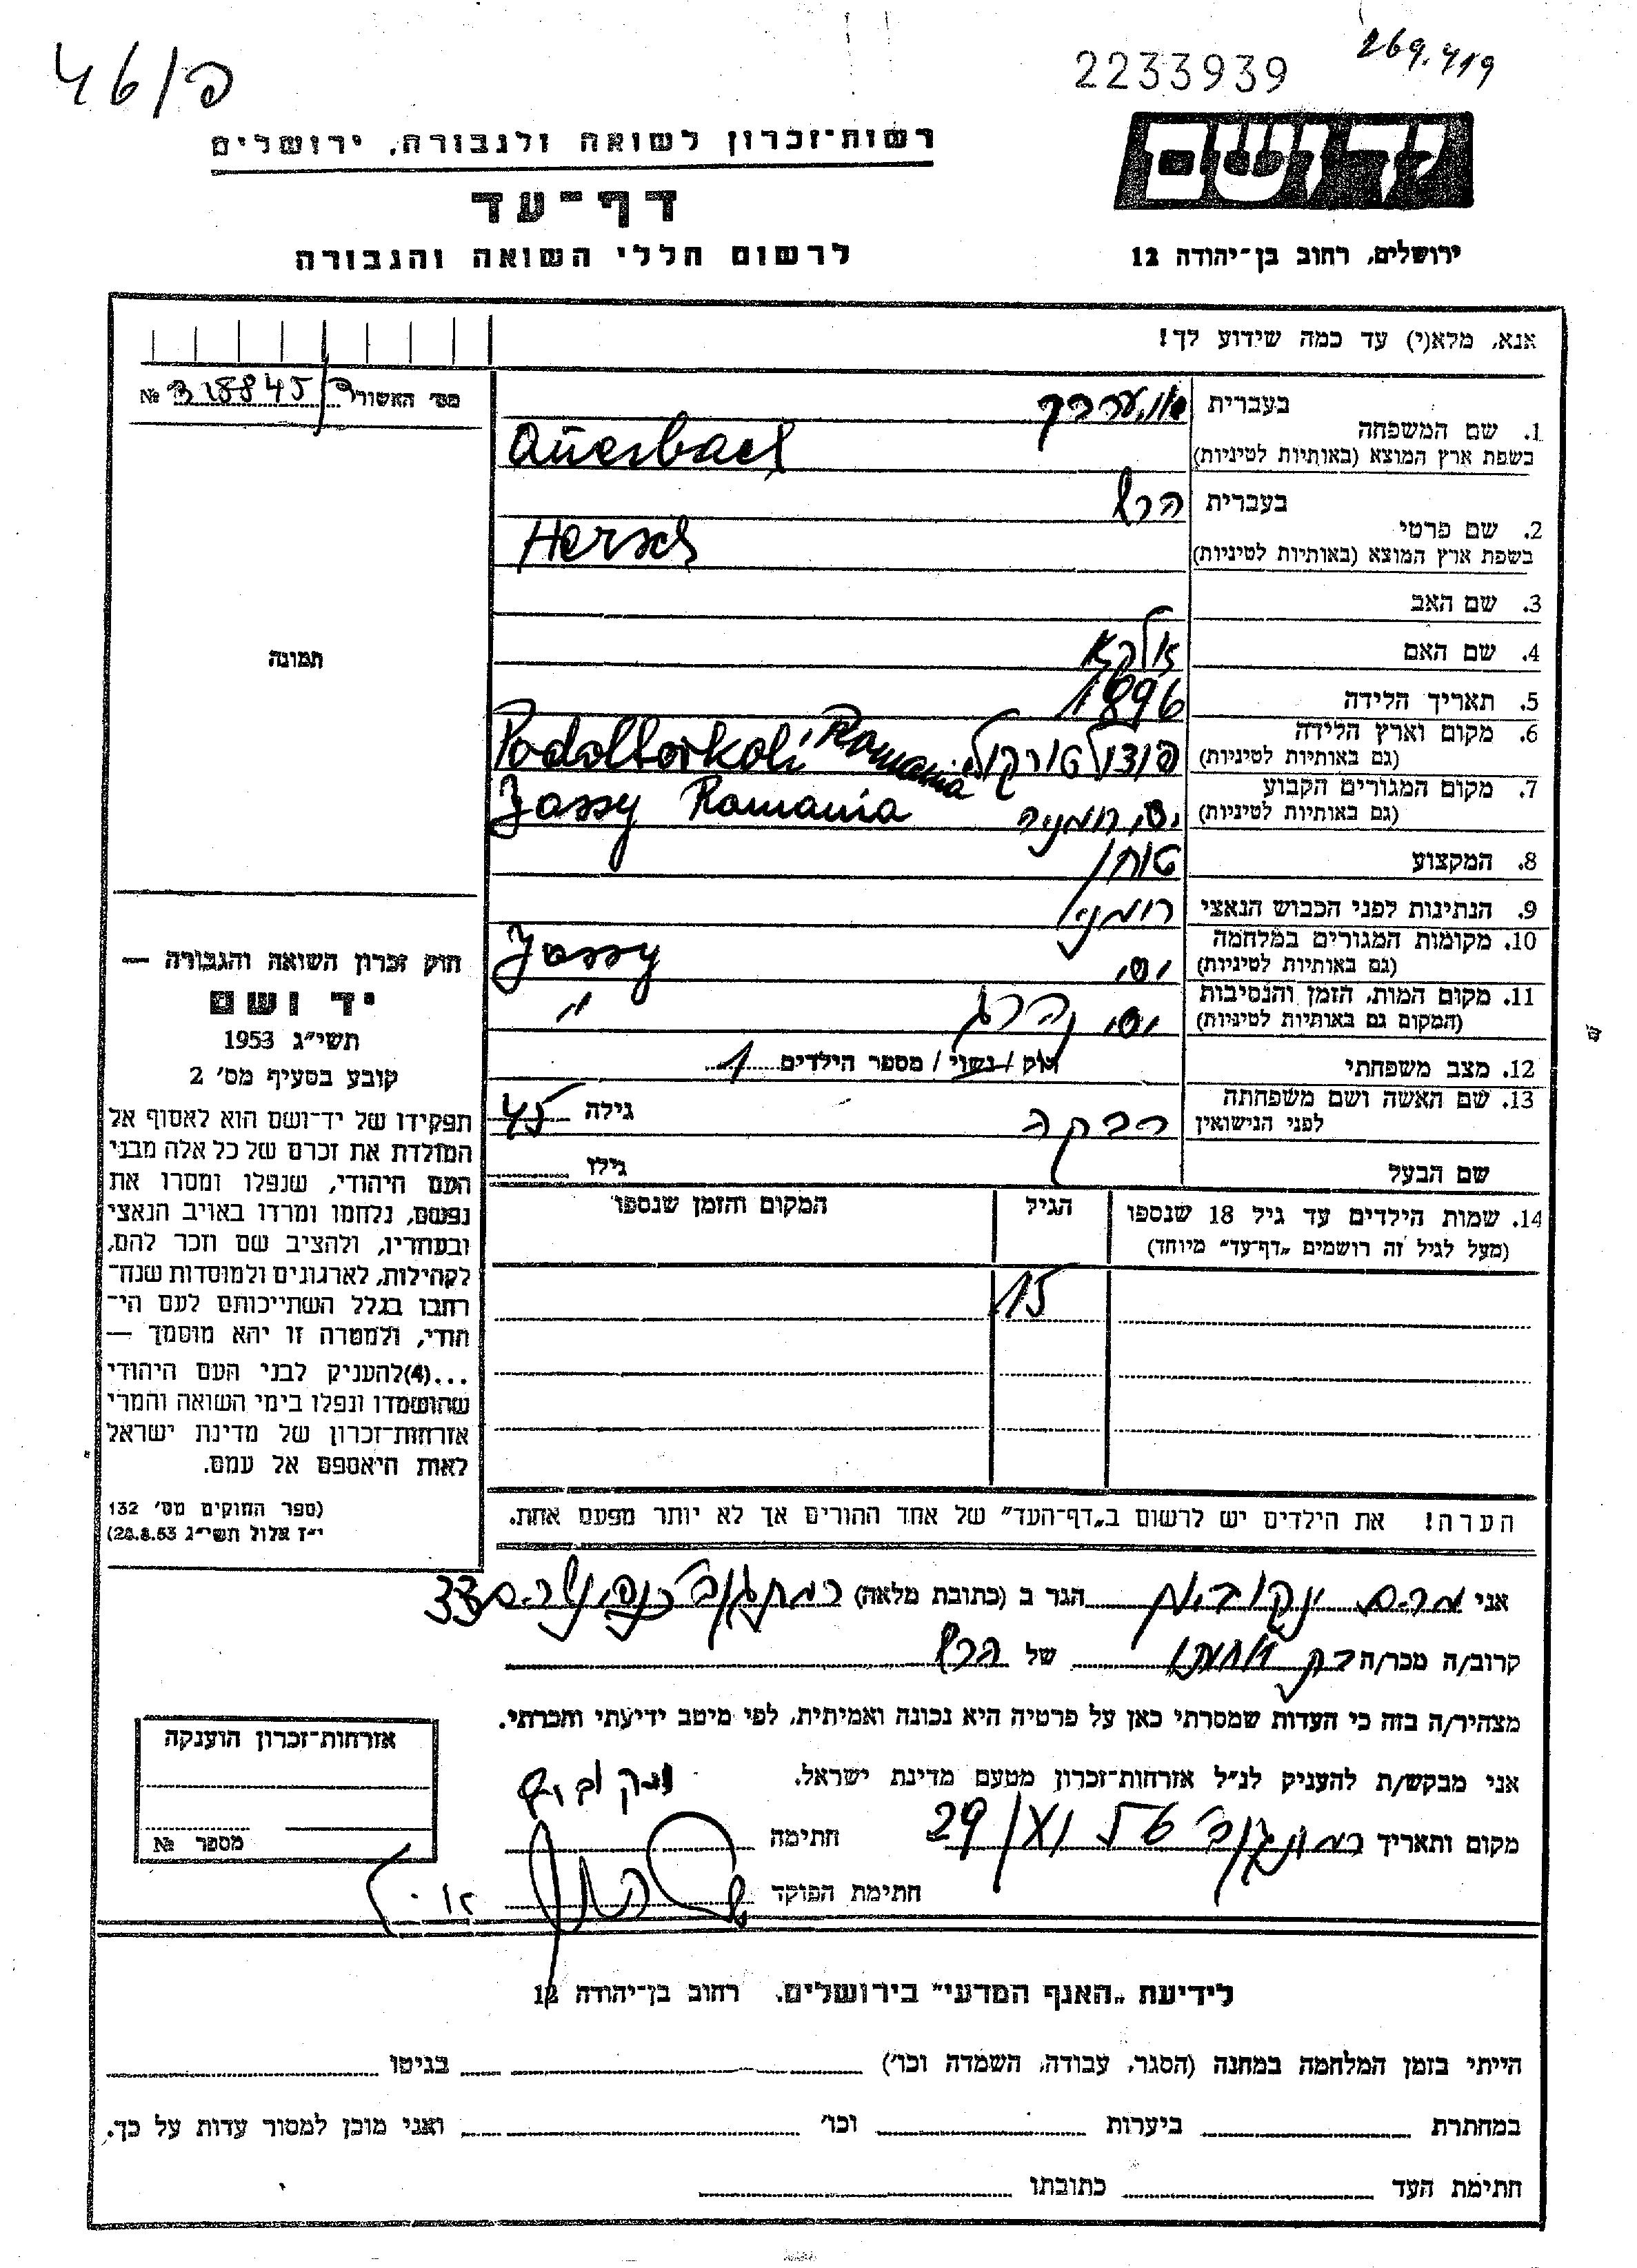 פ/46
2233939
269.419
רשות־זכרון לשואה ולגבורה, ירושלים
דף־עד
לרשום חללי השואה והגבורה
יד ושם
ירושלים, רחוב בן־יהודה 12
אנא, מלא(י) עד כמה שידוע לך!
מס׳ האשור פ/318845 №
1. שם המשפחה בעברית אוערבך
בשפת ארץ המוצא (באותיות לטיניות) Auerbach
2. שם פרטי בעברית הרש
בשפת ארץ המוצא (באותיות לטיניות) Hersch
3. שם האב
4. שם האם
5. תאריך הלידה 1896
6. מקום וארץ הלידה
(גם באותיות לטיניות) Romania
7. מקום המגורים הקבוע
(גם באותיות לטיניות) יסי רומניה Jassy Romania
8. המקצוע סוחר
9. הנתינות לפני הכבוש הנאצי רומני
10. מקומות המגורים במלחמה
(גם באותיות לטיניות) יסי Jassy
11. מקום המות, הזמן והנסיבות
(המקום גם באותיות לטיניות) יסי נהרג "
12. מצב משפחתי רוק / נשוי / מספר הילדים 1
13. שם האשה ושם משפחתה
לפני הנישואין רבקה גילה 45
שם הבעל גילו
14. שמות הילדים עד גיל 18 שנספו
(מעל לגיל זה רושמים „דף־עד" מיוחד)
הגיל
המקום והזמן שנספו
15
הערה! את הילדים יש לרשום ב„דף־העד" של אחד ההורים אך לא יותר מפעם אחת.
תמונה
חוק זכרון השואה והגבורה —
יד ושם
תשי״ג 1953
קובע בסעיף מס׳ 2
תפקידו של יד־ושם הוא לאסוף אל
המולדת את זכרם של כל אלה מבני
העם היהודי, שנפלו ומסרו את
נפשם, נלחמו ומרדו באויב הנאצי
ובעוזריו, ולהציב שם וזכר להם,
לקהילות, לארגונים ולמוסדות שנח־
רבו בגלל השתייכותם לעם הי־
הודי, ולמטרה זו יהא מוסמך —
...(4) להעניק לבני העם היהודי
שהושמדו ונפלו בימי השואה והמרי
אזרחות־זכרון של מדינת ישראל
לאות היאספם אל עמם.
(ספר החוקים מס׳ 132
י״ז אלול תשי״ג 28.8.53)
אני מרים יעקובוביץ הגר ב (כתובת מלאה) רמת גן כנפי נשרים 33
קרוב/ה מכר/ה של הרש
מצהיר/ה בזה כי העדות שמסרתי כאן על פרטיה היא נכונה ואמיתית, לפי מיטב ידיעתי והכרתי.
אני מבקש/ת להעניק לנ״ל אזרחות־זכרון מטעם מדינת ישראל.
מקום ותאריך 29/XI חתימה
חתימת הפוקד
אזרחות־זכרון הוענקה
מספר №
לידיעת „האגף המדעי" בירושלים. רחוב בן־יהודה 12
הייתי בזמן המלחמה במחנה (הסגר, עבודה, השמדה וכו׳) בגיטו
במחתרת ביערות וכו׳ ואני מוכן למסור עדות על כך.
חתימת העד כתובתו